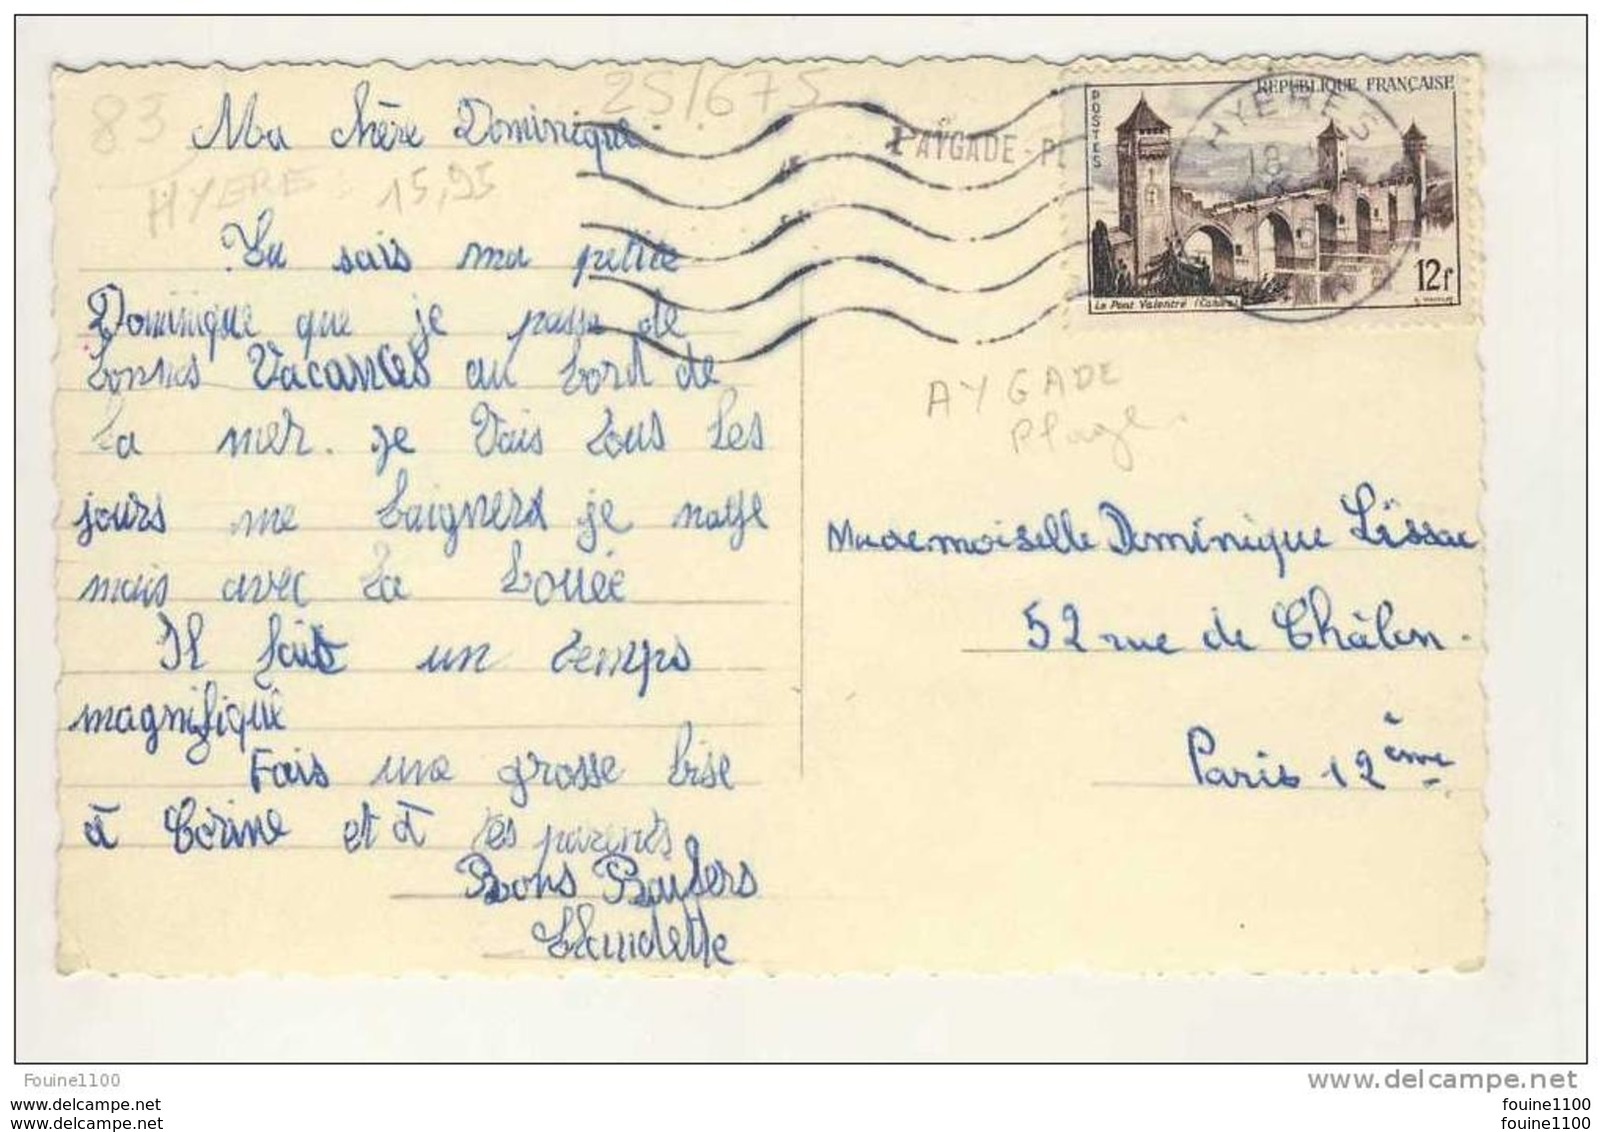 83
25/675
Ma chère Dominique
HYERE
15,95
Tu sais ma petite
Dominique que je passe de
bonnes Vacances au bord de
la mer. je vais tous les
jours me baigners je nage
mais avec la bouée
Il fait un temps
magnifique
Fais une grosse bise
à Corine et à tes parents
Bons Baisers
Claudette
L'AYGADE-PL
HYERES
18
REPUBLIQUE FRANÇAISE
POSTES
12f
Le Pont Valentré (Cahors)
AYGADE
Plage
Mademoiselle Dominique Lissac
52 rue de Châlon.
Paris 12ème
Fouine1100
www.delcampe.net
fouine1100
fouine1100
fouine1100
fouine1100